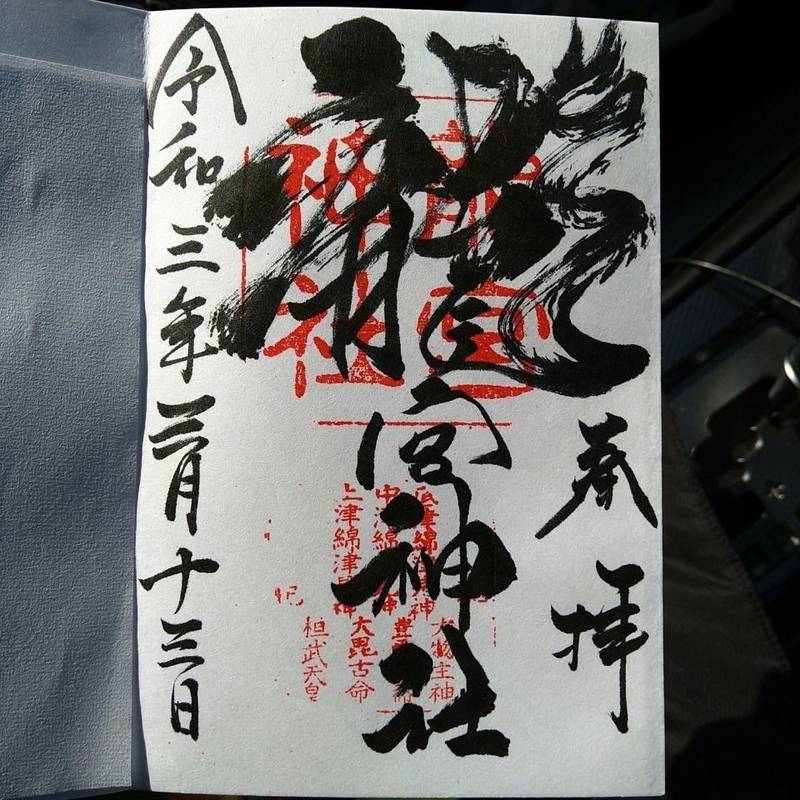 奉拝
龍宮神社
龍宮
神社
底津綿津見神
中津綿津見神
上津綿津見神
大物主神
大毘古命
桓武天皇
令和三年三月十三日